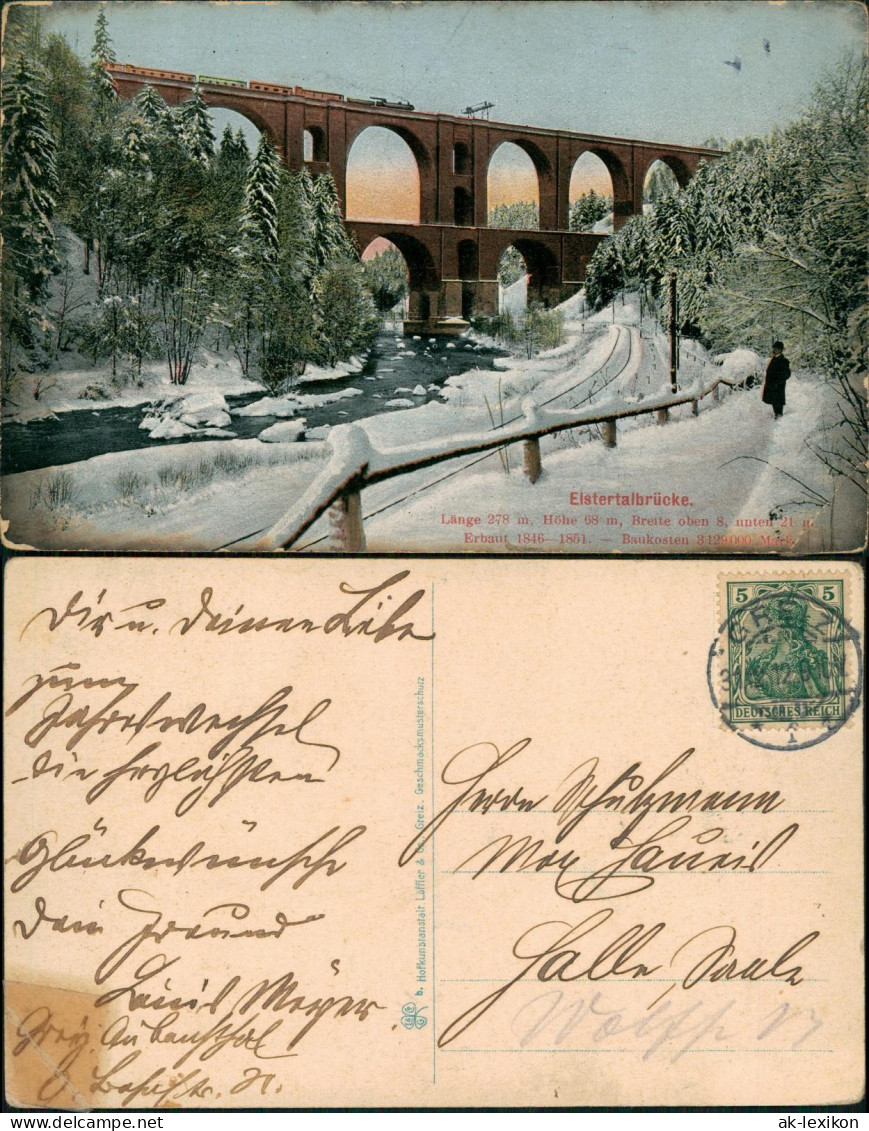 Elstertalbrücke.
Länge 278 m, Höhe 68 m, Breite oben 8, unten 21 m.
Erbaut 1846—1851. — Baukosten 3429000 Mark.
Dir u. Deinen Liebe
zum
Jahreswechsel
die herzlichsten
Glückwünsche
Dein Freund
Louis Meyer
Greiz Aubachthal
b. Hofkunstanstalt Löffler & Co., Greiz. Geschmacksmusterschutz
5 5
DEUTSCHES REICH
GREIZ
1
Herrn Schutzmann
Max
Halle, Saale
ak-lexikon